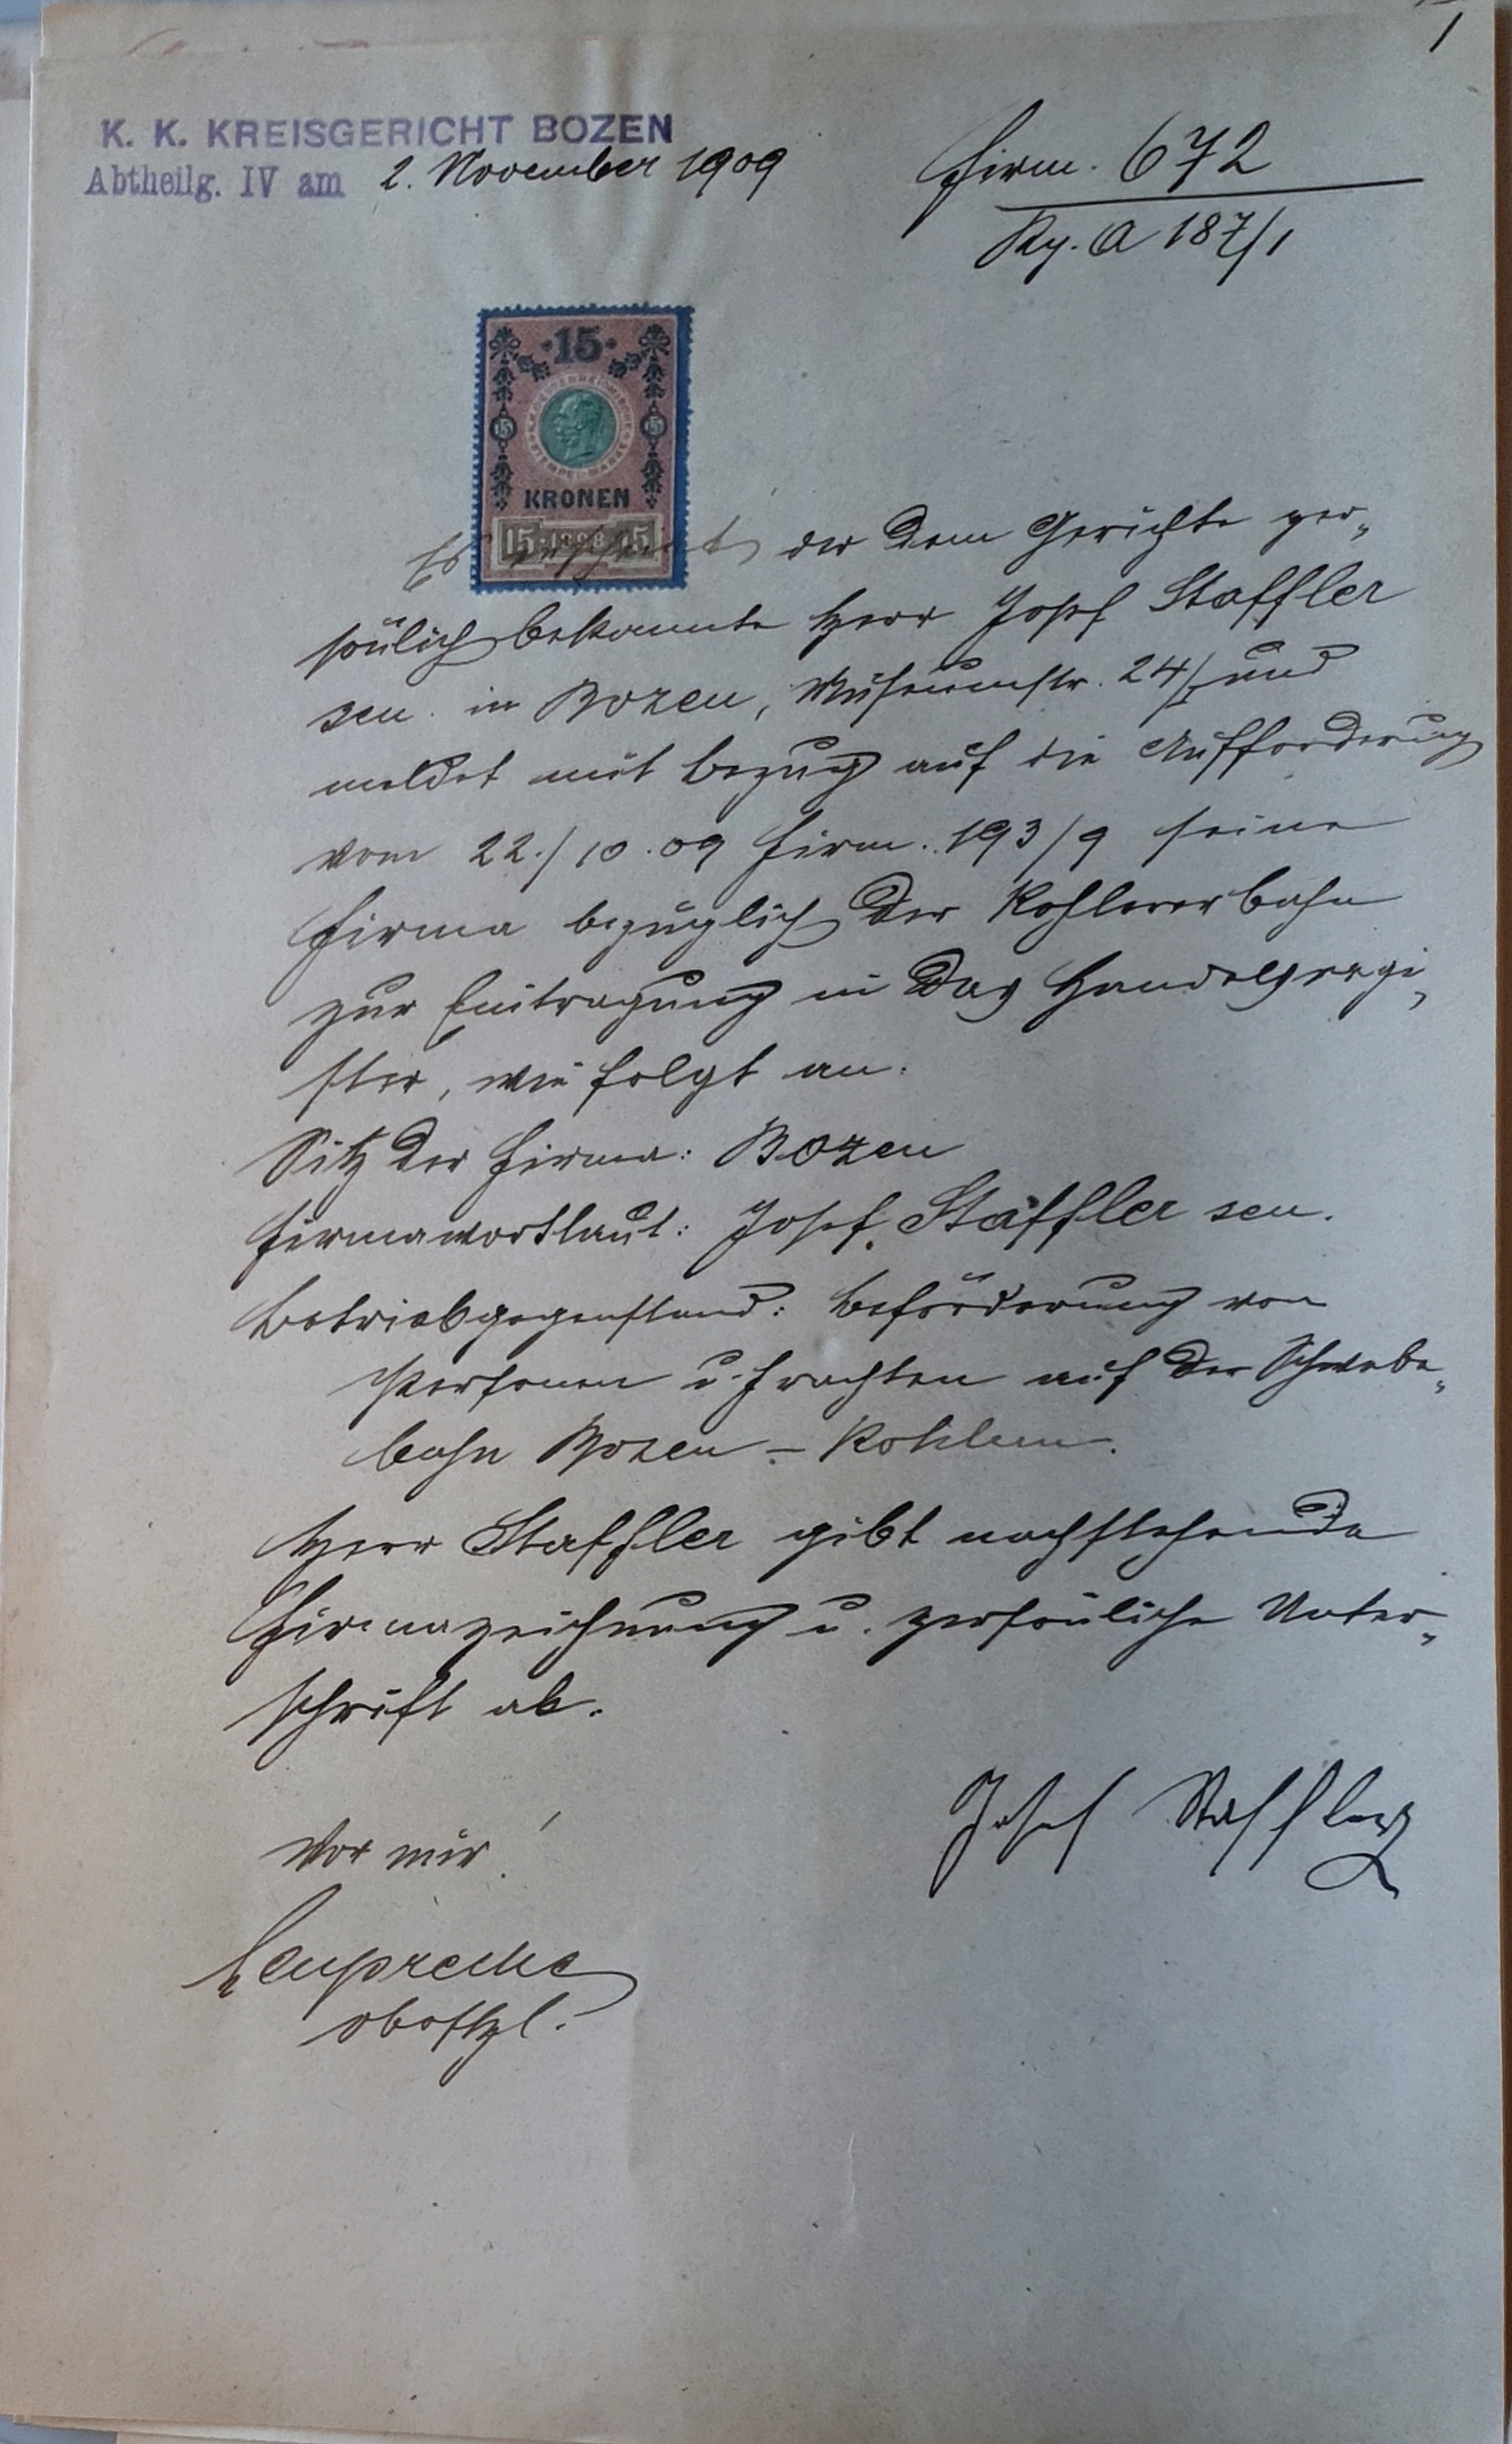 1
K. K. KREISGERICHT BOZEN
Abtheilg. IV am 2. November 1909
Firm. 672
Rg. A 187/1
15
KRONEN
15 1898 15
Es erscheint der dem Gerichte per„
sönlich bekannte Herr Josef Staffler
sen. in Bozen, Museumstr. 24/I und
meldet mit Bezug auf die Aufforderung
vom 22./10.09 Firm. 193/9 seine
Firma bezüglich der Kohlererbahn
zur Eintragung in das Handelsregi„
ster, wie folgt an.
Sitz der Firma: Bozen
Firmawortlaut: Josef Staffler sen.
Betriebsgegenstand: Beförderung von
Personen u. Frachten auf der Schwebe„
bahn Bozen – Kohlern.
Herr Staffler gibt nachstehende
Firmazeichnung u. persönliche Unter„
schrift ab.
Josef Staffler
Vor mir!